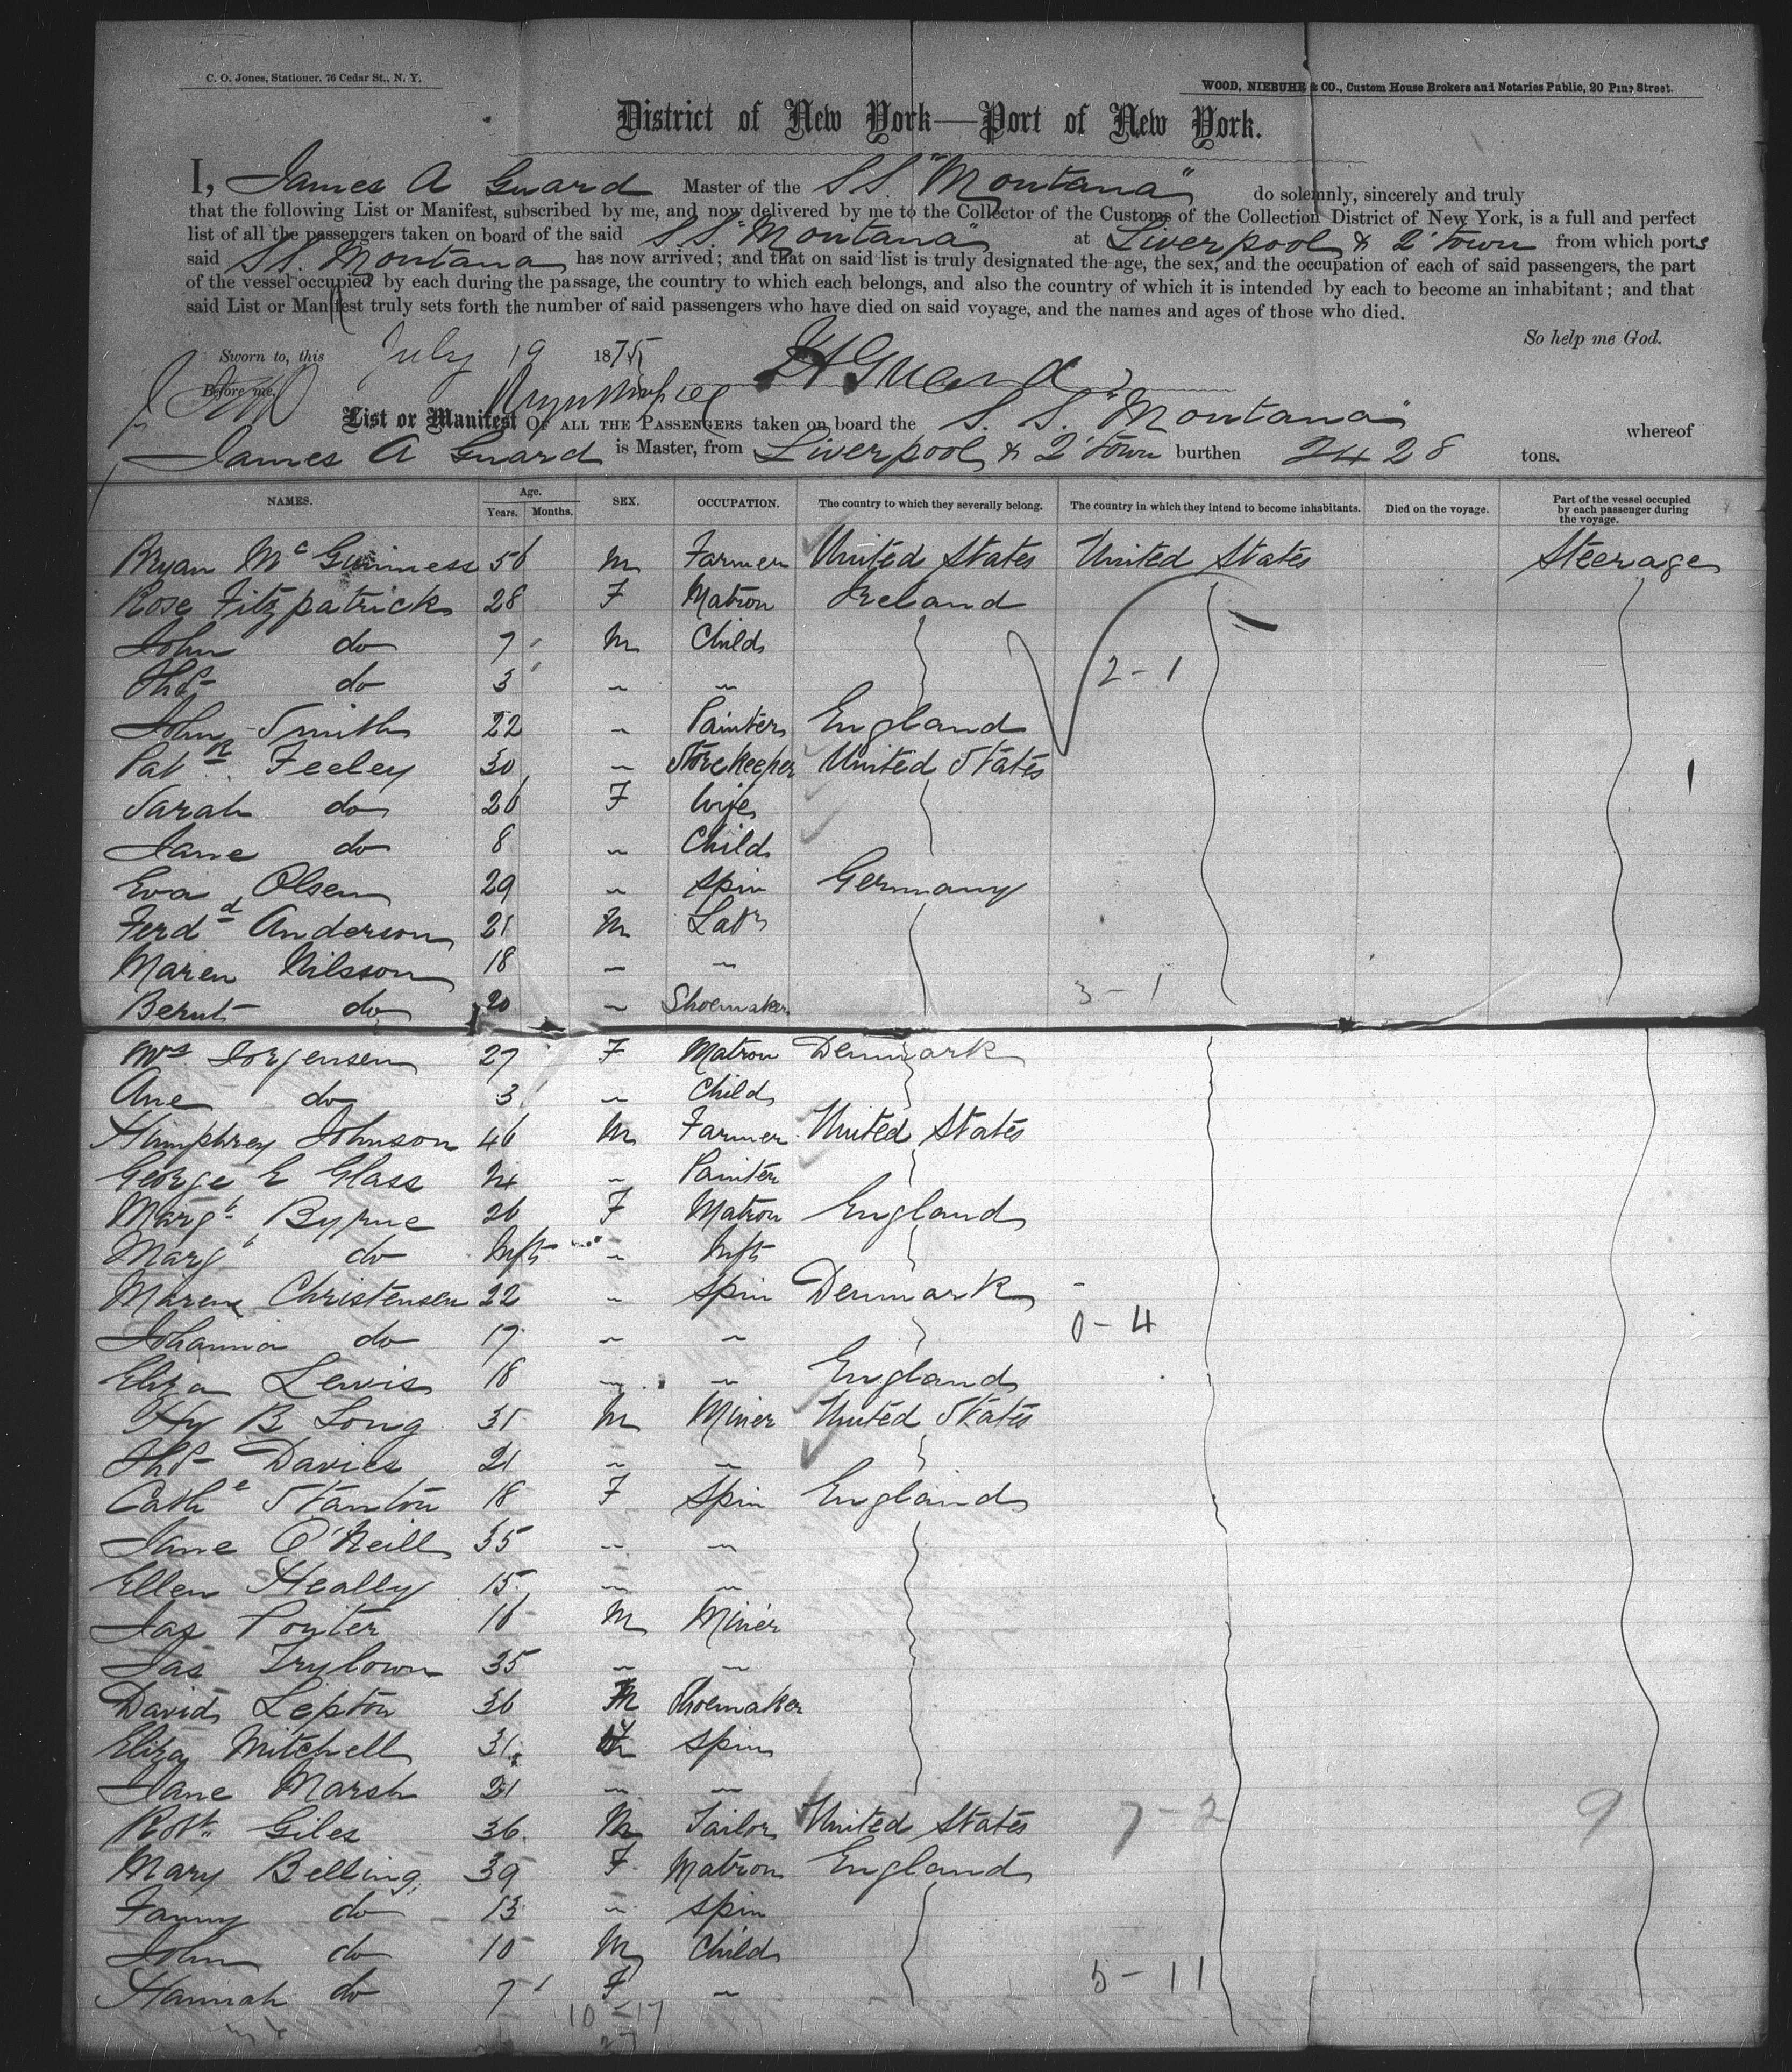 C. O. Jones, Stationer, 76 Cedar St., N. Y.
WOOD, NIEBUHR & CO., Custom House Brokers and Notaries Public, 20 Pine Street.
District of New York—Port of New York.
I, James A Guard Master of the S S. "Montana" do solemnly, sincerely and truly
that the following List or Manifest, subscribed by me, and now delivered by me to the Collector of the Customs of the Collection District of New York, is a full and perfect
list of all the passengers taken on board of the said S S. "Montana" at Liverpool & Q'town from which ports
said S S. Montana has now arrived; and that on said list is truly designated the age, the sex, and the occupation of each of said passengers, the part
of the vessel occupied by each during the passage, the country to which each belongs, and also the country of which it is intended by each to become an inhabitant; and that
said List or Manifest truly sets forth the number of said passengers who have died on said voyage, and the names and ages of those who died.
So help me God.
Sworn to, this July 19 1875 JAGuard
Before me,
List or Manifest OF ALL THE PASSENGERS taken on board the S. S. "Montana" whereof
James A Guard is Master, from Liverpool & Q'town burthen 2428 tons.
NAMES. Age. Years. Months. SEX. OCCUPATION. The country to which they severally belong. The country in which they intend to become inhabitants. Died on the voyage. Part of the vessel occupied by each passenger during the voyage.
Bryan McGuinness 56 M Farmer United States United States Steerage
Rose Fitzpatrick 28 F Matron Ireland
John do 7 M Child
Thos do 3 " " 2-1
John Smith 22 " Painter England
Patk Feeley 30 " Storekeeper United States 1
Sarah do 26 F Wife
Jane do 8 " Child
Eva Olsen 29 " Spin Germany
Ferdd Anderson 21 M Labr
Maren Nilsson 18 " "
Bernt do 20 " Shoemaker 3-1
Mrs Jorgensen 27 F Matron Denmark
Ane do 3 " Child
Humphrey Johnson 46 M Farmer United States
George E Glass 24 " Painter
Margt Byrne 26 F Matron England
Margt do Inft " Inft
Maren Christensen 22 " Spin Denmark
Johanna do 17 " " 0-4
Eliza Lewis 18 " " England
Hy B Long 31 M Miner United States
Thos Davies 21 " "
Cathe Stanton 18 F Spin England
Jane O'Neill 35 " "
Ellen Heally 15 " "
Jas Ponter 16 M Miner
Jas 35 " "
David Lepton 36 M Shoemaker
Eliza Mitchell 31 F Spin
Jane Marsh 21 " "
Robt Giles 36 M Tailor United States 7-2 9
Mary Belling 39 F Matron England
Fanny do 13 " Spin
John do 10 M Child
Hannah do 7 F " 5-11
10-17
27